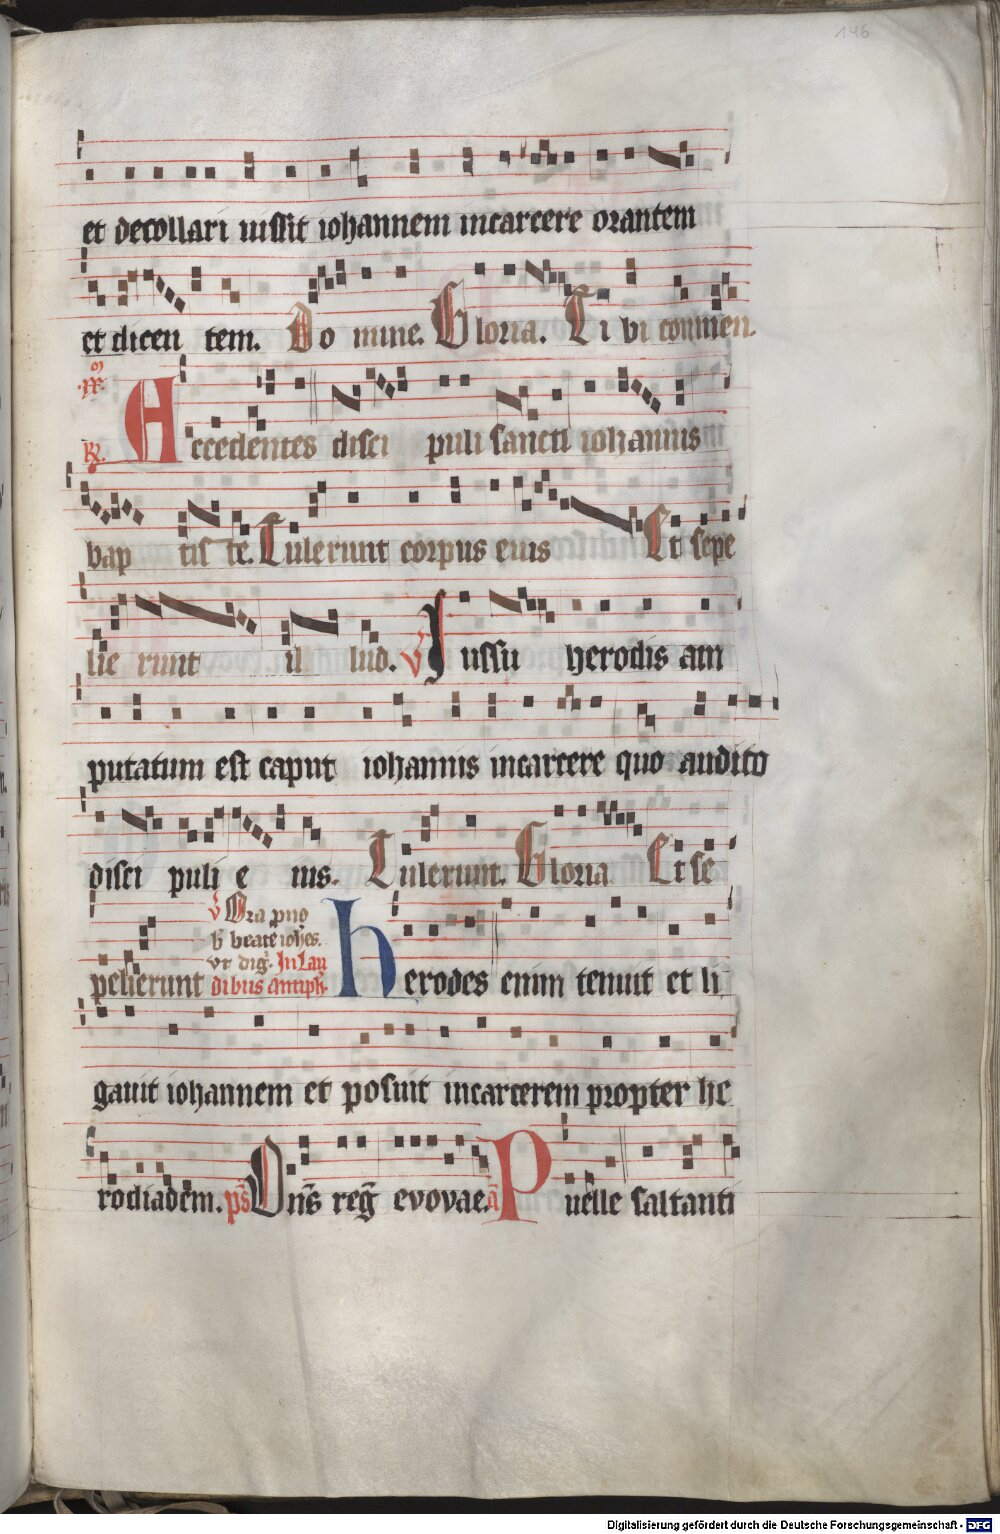 146
et decollari iussit iohannem incarcere orantem
et dicen tem. Do mine. Gloria. Ti bi commen.
R. Accedentes disci puli sancti iohannis
bap tis te. Tulerunt corpus eius Et sepe
lie runt il lud. V Iussu herodis am
putatum est caput iohannis incarcere quo audito
disci puli e ius. Tulerunt. Gloria Et se
V Ora pno
b beate iohes.
vt dig. In Lau
pelierunt dibus antiph. herodes enim tenuit et li
gauit iohannem et posuit incarcerem propter he
rodiadem. ps Dns reg evovae. a Puelle saltanti
Digitalisierung gefördert durch die Deutsche Forschungsgemeinschaft - DFG